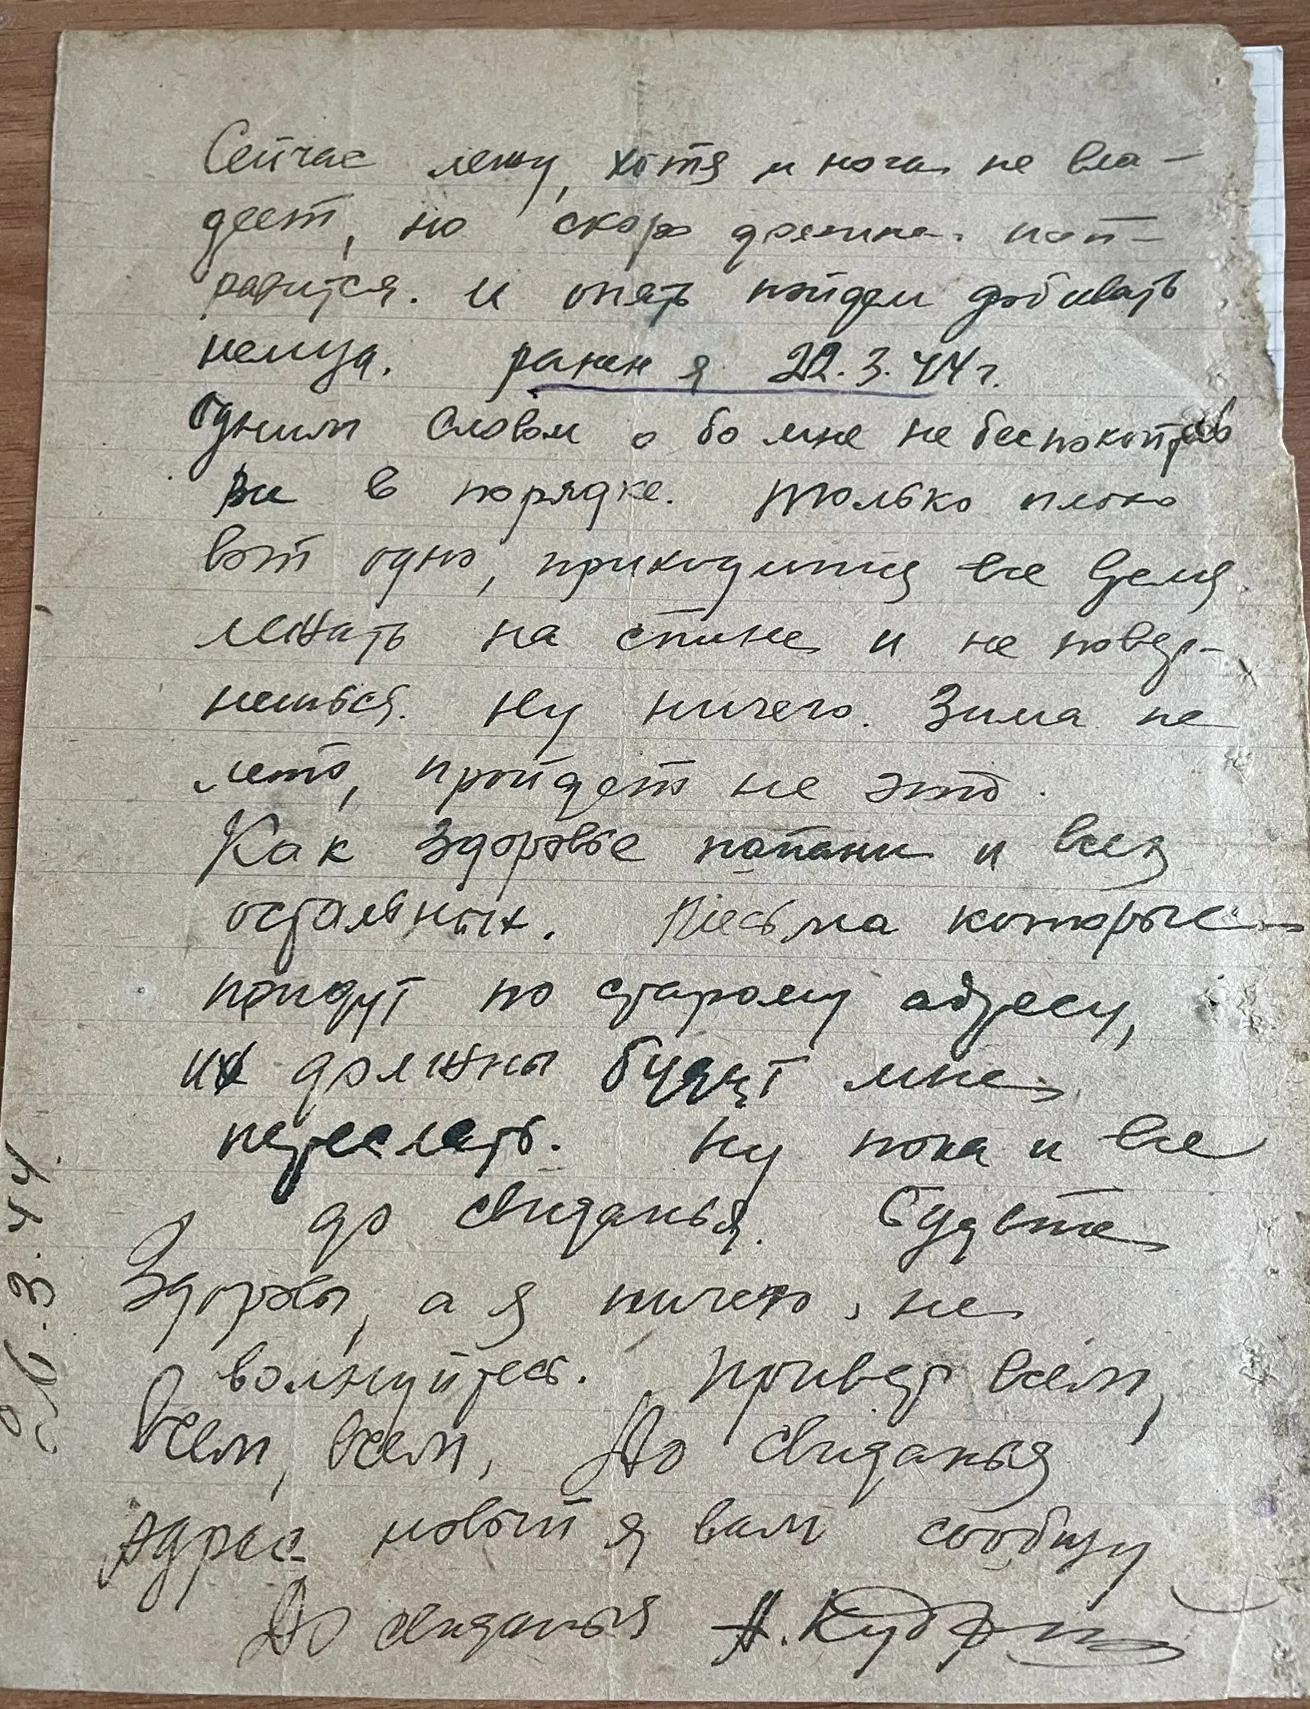 Сейчас лежу, хотя и нога не вла-
деет, но скоро должна поп-
равится. и опять пойдем добивать
немца. ранен я 22.3.44 г.
Одним словом о бо мне не беспокойтесь
все в порядке. только плохо
вот одно, приходится все время
лежать на спине и не повер-
нешься. Ну ничего. Зима не
лето, пройдет не это.
Как здоровье папани и всех
остальных. Письма которые
придут по старому адресу,
их должны будут мне
переслать. Ну пока и все
до свиданья. Будьте
Здоровы, а я ничего, не
волнуйтесь. Привет всем,
всем, всем, До свиданья
Адрес новый я вам сообщу
До свиданья А.
26.3.44.